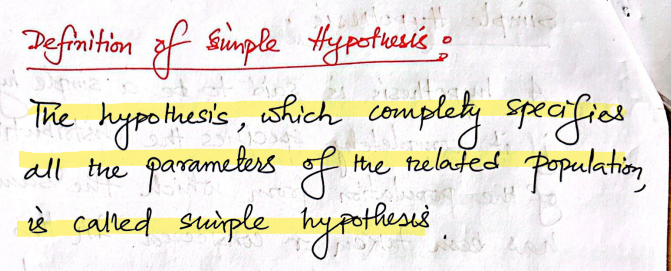 Definition of Simple Hypothesis:
The hypothesis, which complety specifies
all the parameters of the related population,
is called simple hypothesis.